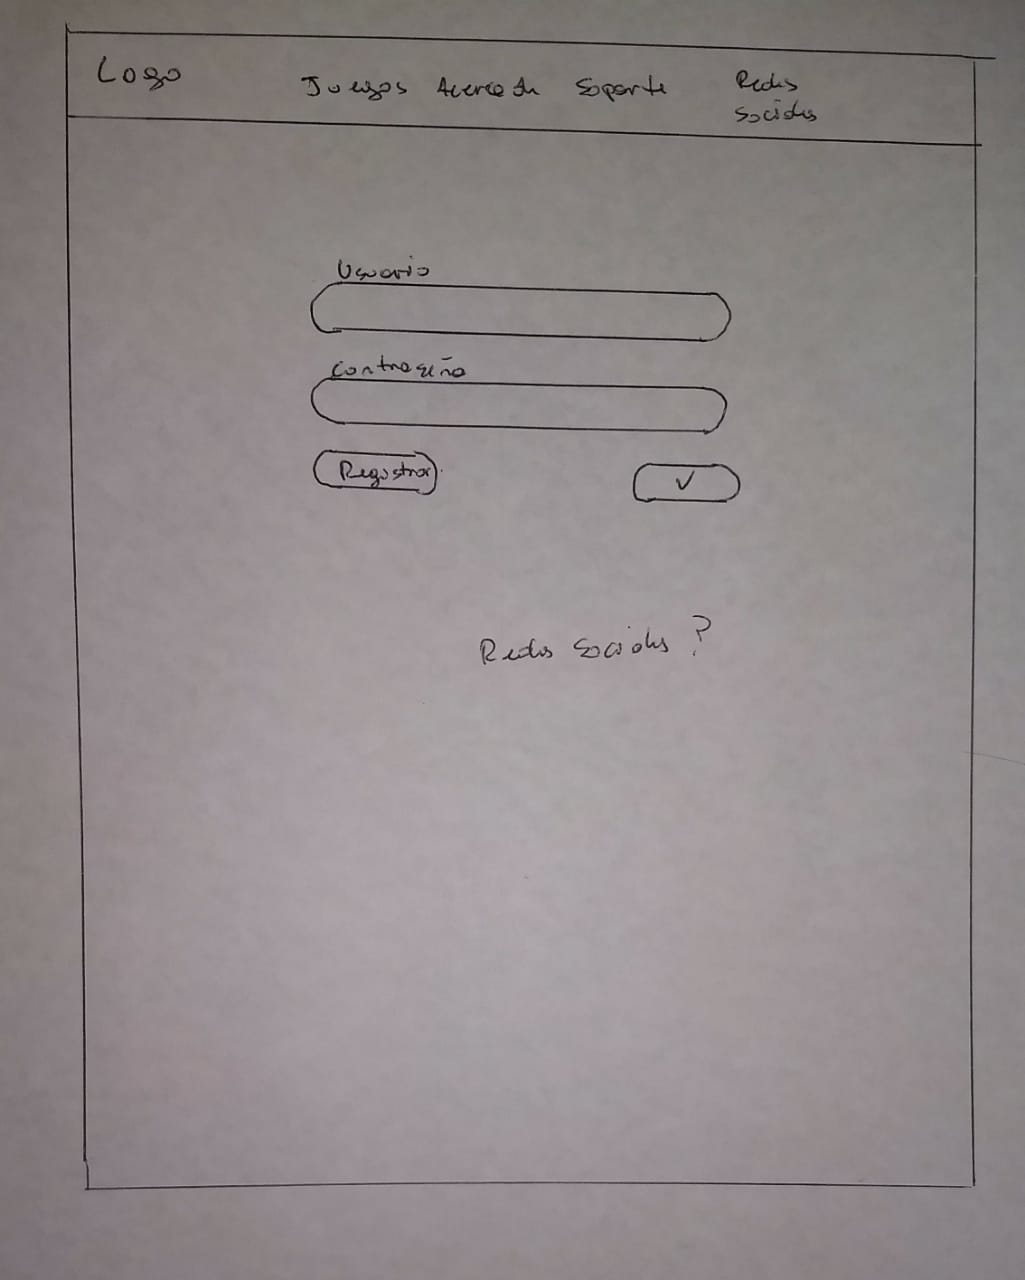 Logo
Juegos Acerca de Soporte Redes
Sociales
Usuario
Contraseña
Registrar
✓
Redes Sociales ?